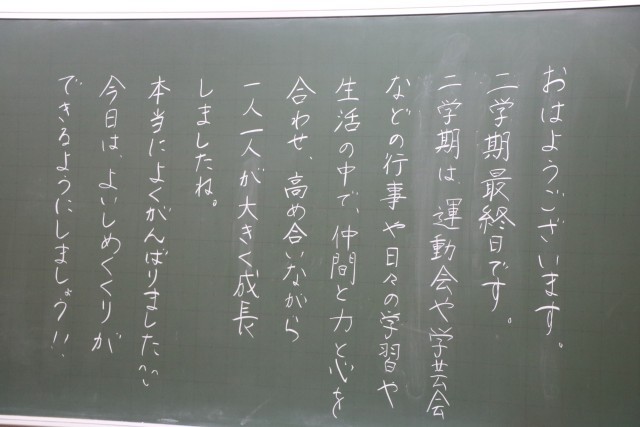 おはようございます。
二学期最終日です。
二学期は、運動会や学芸会
などの行事や日々の学習や
生活の中で、仲間と力と心を
合わせ、高め合いながら
一人一人が大きく成長
しましたね。
本当によくがんばりました^^
今日は、よいしめくくりが
できるようにしましょう!!